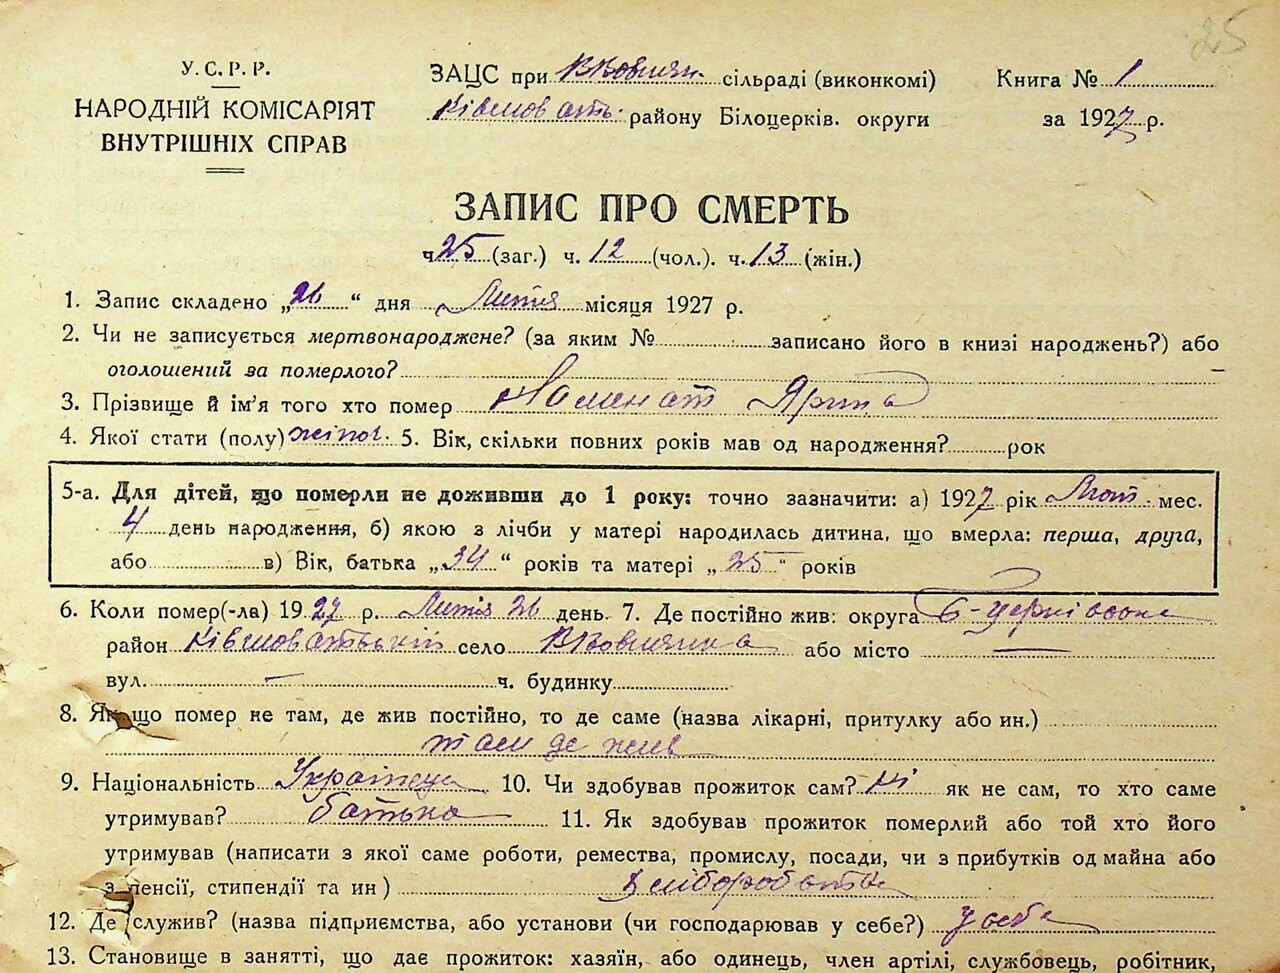 25
У.С.Р.Р.
НАРОДНІЙ КОМІСАРІЯТ
ВНУТРІШНІХ СПРАВ
ЗАЦС при сільраді (виконкомі)
району Білоцерків. округи
Книга № 1
за 1927 р.
ЗАПИС ПРО СМЕРТЬ
ч. 25 (заг.) ч. 12 (чол.). ч. 13 (жін.)
1. Запис складено „26“ дня Лютня місяця 1927 р.
2. Чи не записується мертвонароджене? (за яким № записано його в книзі народжень?) або
оголошений за померлого?
3. Прізвище й ім'я того хто помер Ярина
4. Якої стати (полу) жіноч. 5. Вік, скільки повних років мав од народження? рок
5-а. Для дітей, що померли не доживши до 1 року: точно зазначити: а) 1927 рік Лют. мес.
4 день народження, б) якою з лічби у матері народилась дитина, що вмерла: перша, друга,
або в) Вік, батька „34“ років та матері „25“ років
6. Коли помер(-ла) 1927 р. Лютня 26 день. 7. Де постійно жив: округа Б-Церківська
район Ківшоватський село або місто —
вул. — ч. будинку
8. Якщо помер не там, де жив постійно, то де саме (назва лікарні, притулку або ин.)
там де жив
9. Національність Українець 10. Чи здобував прожиток сам? ні як не сам, то хто саме
утримував? батько 11. Як здобував прожиток померлий або той хто його
утримував (написати з якої саме роботи, ремества, промислу, посади, чи з прибутків од майна або
з пенсії, стипендії та ин) хліборобства
12. Де служив? (назва підприємства, або установи (чи господарював у себе?) у себе
13. Становище в занятті, що дає прожиток: хазяїн, або одинець, член артілі, службовець, робітник,